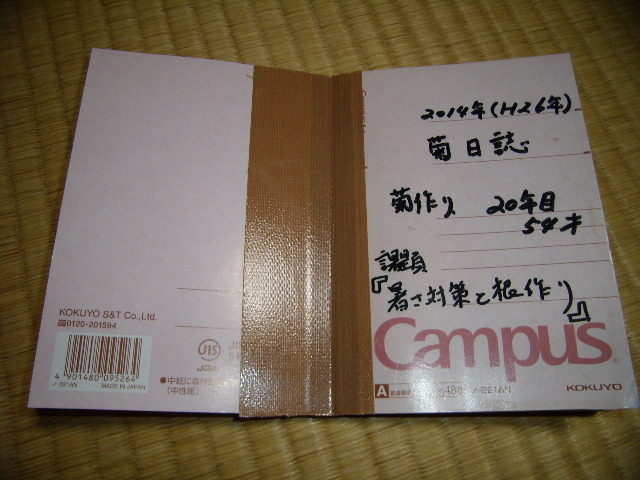 2014年(H26年)
菊日誌
菊作り 20年目
54才
課題
『暑さ対策と根作り』
Campus
KOKUYO
KOKUYO S&T Co., Ltd.
0120-201594
4 901480 095264
ノ-221AN MADE IN JAPAN
JIS
●中紙に
(中性紙)
A
ノ-221AN